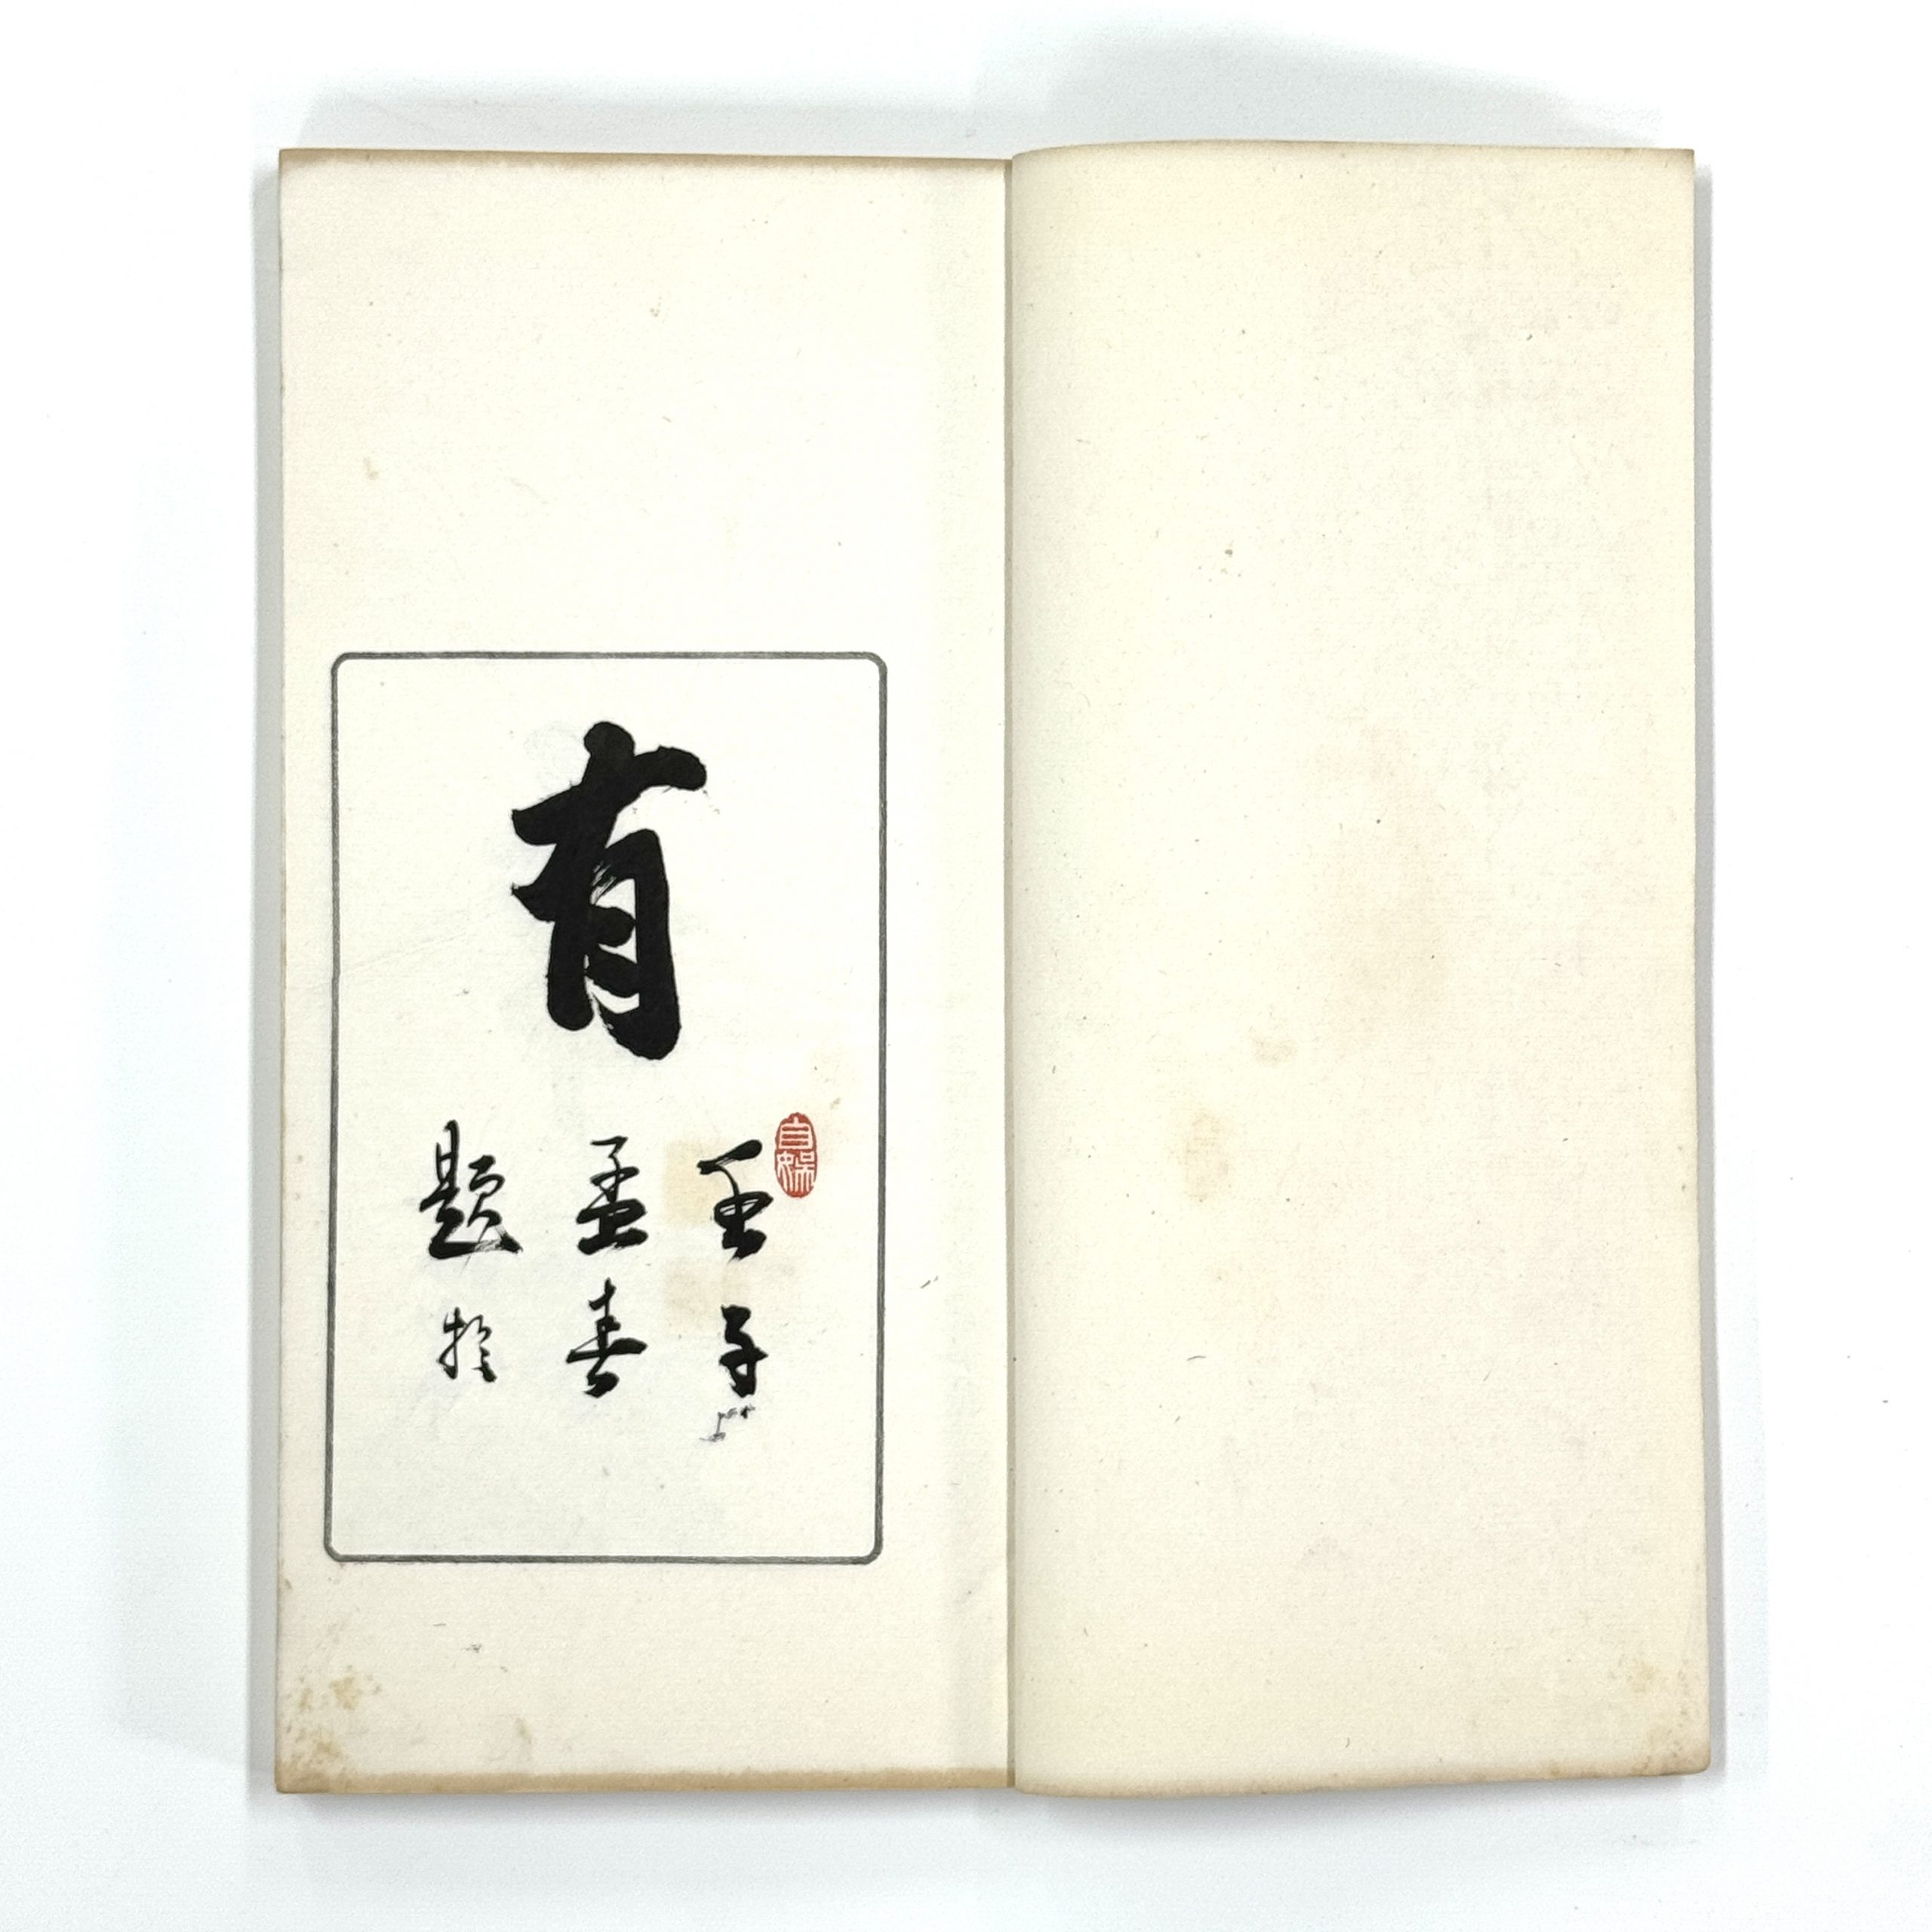 有
壬子
孟春
題於